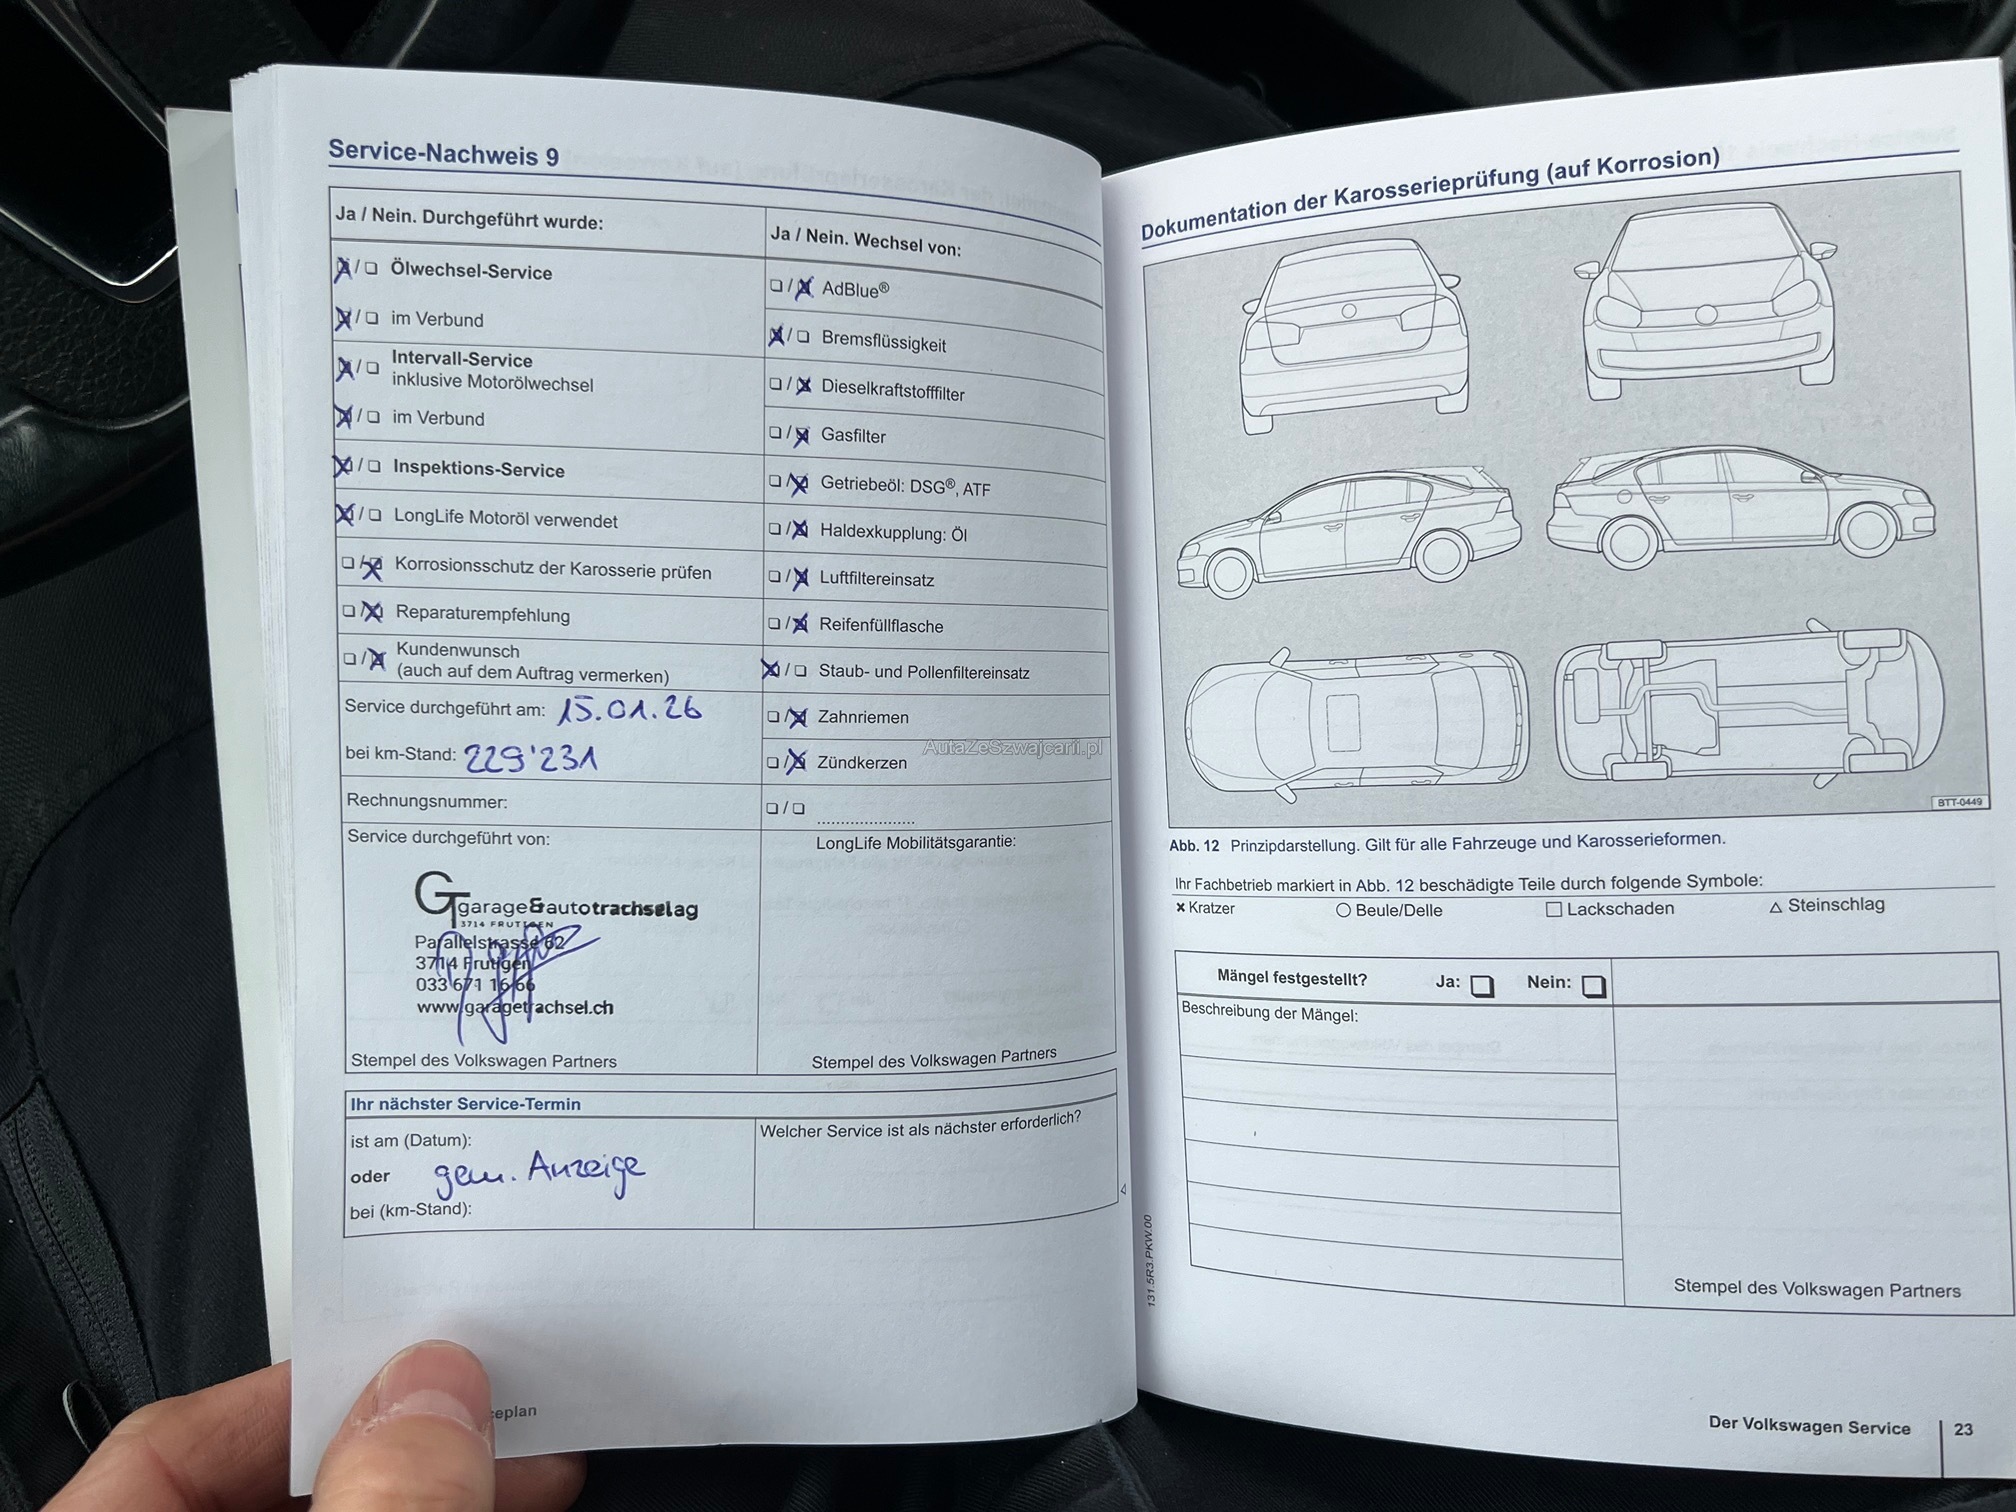 Service-Nachweis 9
Ja / Nein. Durchgeführt wurde:
Ölwechsel-Service
im Verbund
Intervall-Service
inklusive Motorölwechsel
im Verbund
Inspektions-Service
LongLife Motoröl verwendet
Korrosionsschutz der Karosserie prüfen
Reparaturempfehlung
Kundenwunsch
(auch auf dem Auftrag vermerken)
Service durchgeführt am: 15.01.26
bei km-Stand: 229'231
Rechnungsnummer:
Service durchgeführt von:
GT garage&autotrachselag
3714 FRUTIGEN
Parallelstrasse 62
3714 Frutigen
033 671 16 66
www.garagetrachsel.ch
Stempel des Volkswagen Partners
Ja / Nein. Wechsel von:
AdBlue®
Bremsflüssigkeit
Dieselkraftstofffilter
Gasfilter
Getriebeöl: DSG®, ATF
Haldexkupplung: Öl
Luftfiltereinsatz
Reifenfüllflasche
Staub- und Pollenfiltereinsatz
Zahnriemen
AutaZeSzwajcarii.pl
Zündkerzen
LongLife Mobilitätsgarantie:
Stempel des Volkswagen Partners
Ihr nächster Service-Termin
ist am (Datum):
oder gem. Anzeige
bei (km-Stand):
Welcher Service ist als nächster erforderlich?
eplan
Dokumentation der Karosserieprüfung (auf Korrosion)
BTT-0449
Abb. 12 Prinzipdarstellung. Gilt für alle Fahrzeuge und Karosserieformen.
Ihr Fachbetrieb markiert in Abb. 12 beschädigte Teile durch folgende Symbole:
× Kratzer ○ Beule/Delle □ Lackschaden △ Steinschlag
Mängel festgestellt? Ja: Nein:
Beschreibung der Mängel:
Stempel des Volkswagen Partners
131.5R3.PKW.00
Der Volkswagen Service 23